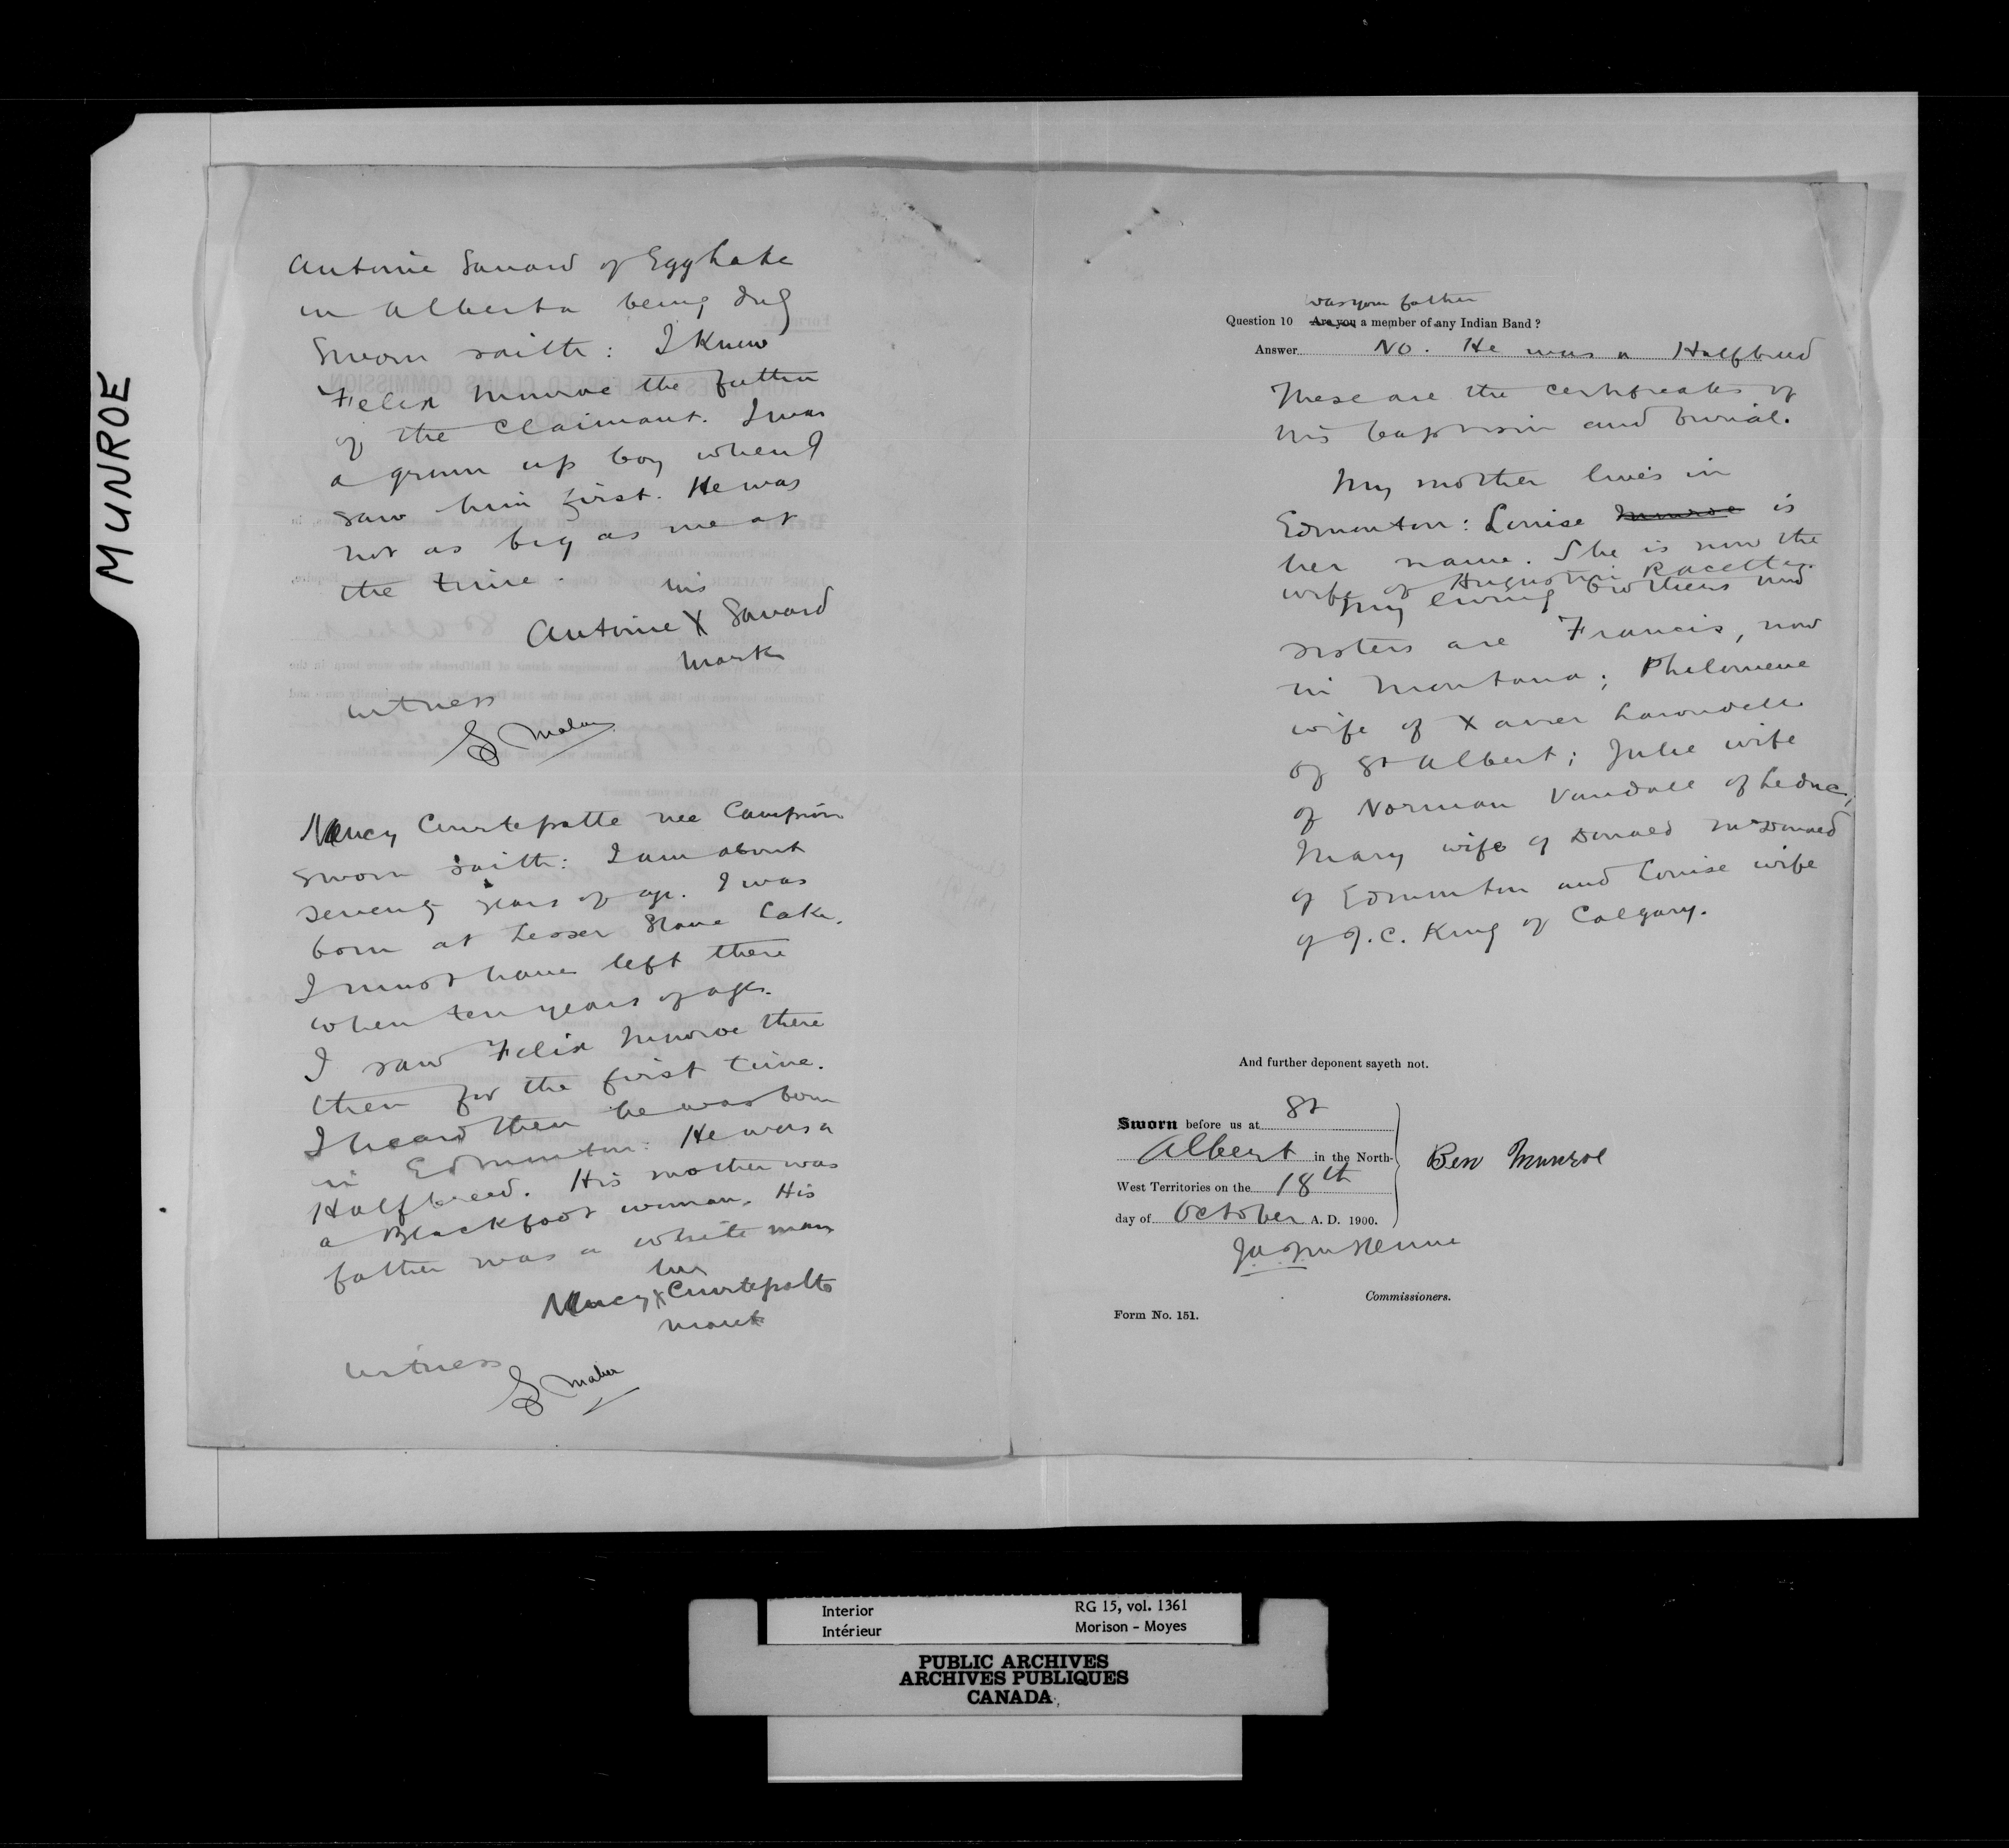 MUNROE
Antoine Savard of Egg Lake
in Alberta being duly
sworn saith: I knew
Felix Munroe the father
of the Claimant. I was
a grown up boy when I
saw him first. He was
not as big as me at
the time.
his
Antoine X Savard
mark
Witness
Nancy Courtepatte nee Campion
sworn saith: I am about
seventy years of age. I was
born at Lesser Slave Lake.
I must have left there
when ten years of age.
I saw Felix Munroe there
then for the first time.
I heard then he was born
in Edmonton. He was a
Halfbreed. His mother was
a Blackfoot woman. His
father was a white man
her
Nancy X Courtepatte
mark
Witness
was your father
Question 10 Are you a member of any Indian Band ?
Answer No. He was a Halfbreed
These are the certificates of
his baptism and burial.
My mother lives in
Edmonton: Louise Munroe is
her name. She is now the
wife of Augustin Racette.
My living brothers and
sisters are Francis, now
in Montana; Philomene
wife of Xavier Larondelle
of St Albert; Julie wife
of Norman Vandall of Leduc;
Mary wife of Donald McDonald
of Edmonton and Louise wife
of J.C. King of Calgary.
And further deponent sayeth not.
Sworn before us at St
Albert in the North-
West Territories on the 18th
day of October A. D. 1900.
Ben Munroe
J.A. McKenna
Commissioners.
Form No. 151.
Interior RG 15, vol. 1361
Intérieur Morison - Moyes
PUBLIC ARCHIVES
ARCHIVES PUBLIQUES
CANADA